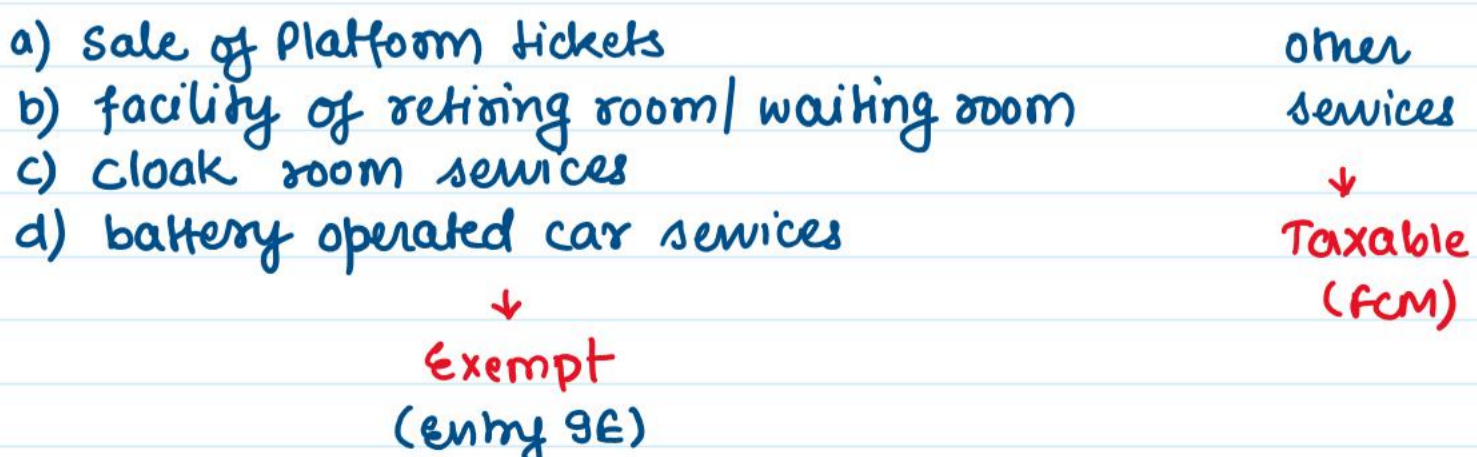 a) Sale of Platform tickets
b) facility of retiring room/ waiting room
c) Cloak room services
d) battery operated car services
↓
Exempt
(Entry 9E)
other
services
↓
Taxable
(FCM)